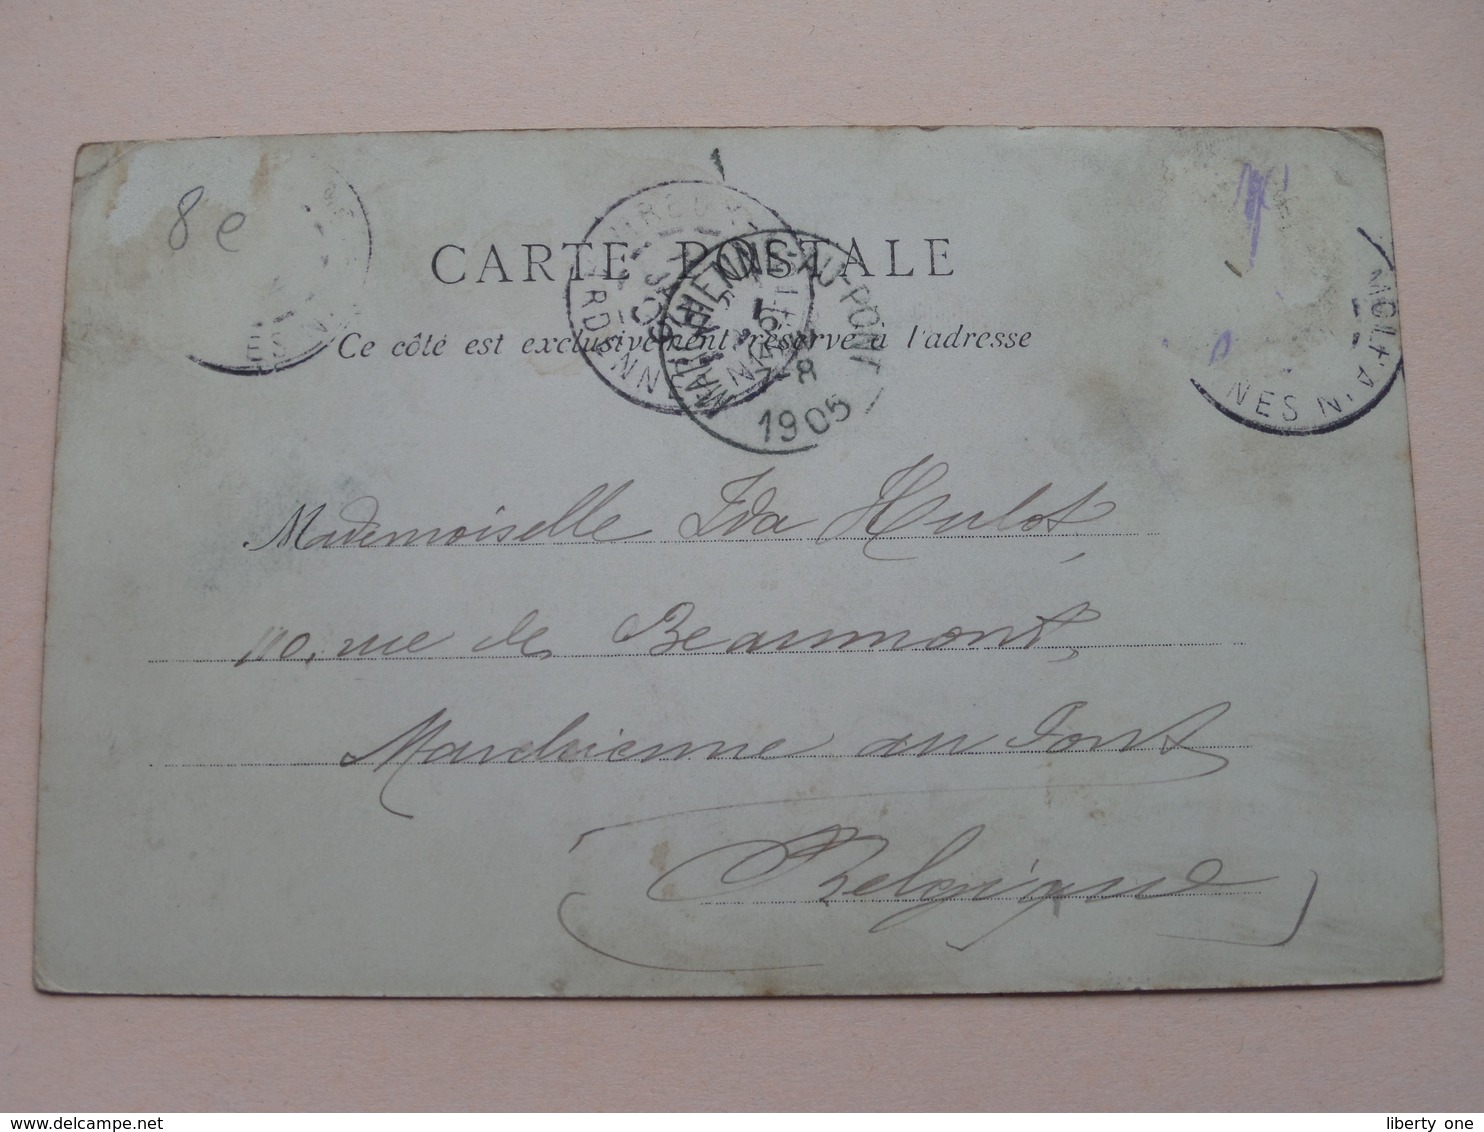 8e
CARTE POSTALE
Ce côté est exclusivement réservé à l'adresse
MARCHIENNE-AU-PONT
7-8
1905
NES
Mademoiselle Ida Hulot,
110, rue de Beaumont,
Marchienne au Pont
Belgique
www.delcampe.net
liberty one